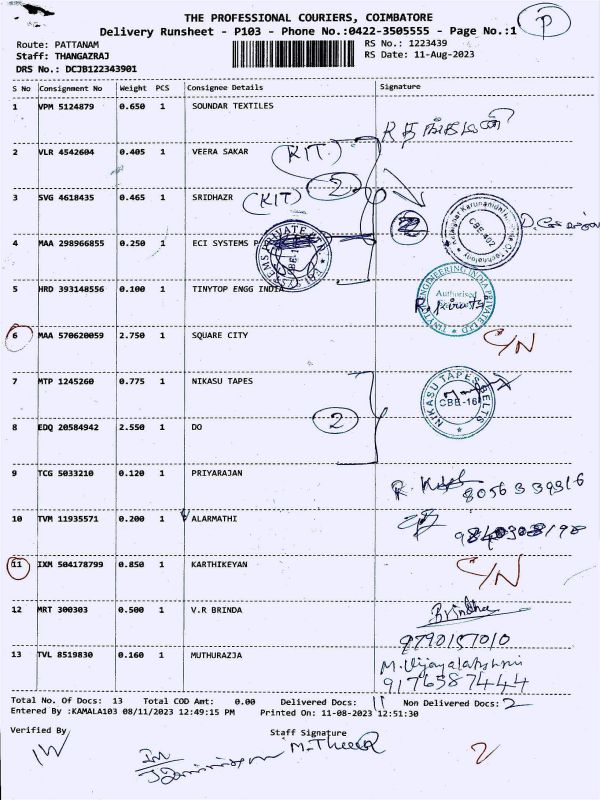 THE PROFESSIONAL COURIERS, COIMBATORE
P
Delivery Runsheet - P103 - Phone No.:0422-3505555 - Page No.:1
Route: PATTANAM RS No.: 1223439
Staff: THANGAZRAJ RS Date: 11-Aug-2023
DRS No.: DCJB122343901
S No Consignment No Weight PCS Consignee Details Signature
1 VPM 5124879 0.650 1 SOUNDAR TEXTILES
2 VLR 4542604 0.405 1 VEERA SAKAR (KIT)
2
3 SVG 4618435 0.465 1 SRIDHAZR (KIT)
2
4 MAA 298966855 0.250 1 ECI SYSTEMS P
CBE-402
5 HRD 393148556 0.100 1 TINYTOP ENGG INDIA
TINYTOP ENGINEERING INDIA PRIVATE LTD
Authorised
6 MAA 570620059 2.750 1 SQUARE CITY C/N
7 MTP 1245260 0.775 1 NIKASU TAPES
NIKASU TAPES BELTS
CBE-16
2
8 EDQ 20584942 2.550 1 DO
9 TCG 5033210 0.120 1 PRIYARAJAN
8056339316
10 TVM 11935571 0.200 1 ALARMATHI
11 IXM 504178799 0.850 1 KARTHIKEYAN C/N
12 MRT 300303 0.500 1 V.R BRINDA Brindha
9790157010
13 TVL 8519830 0.160 1 MUTHURAZJA M.Vijayalakshmi
9176587444
Total No. Of Docs: 13 Total COD Amt: 0.00 Delivered Docs: 11 Non Delivered Docs: 2
Entered By :KAMALA103 08/11/2023 12:49:15 PM Printed On: 11-08-2023 12:51:30
Verified By Staff Signature
2